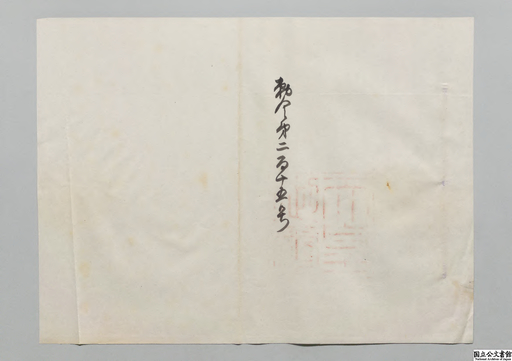 勅令第二百十五号
国立公文書館
National Archives of Japan